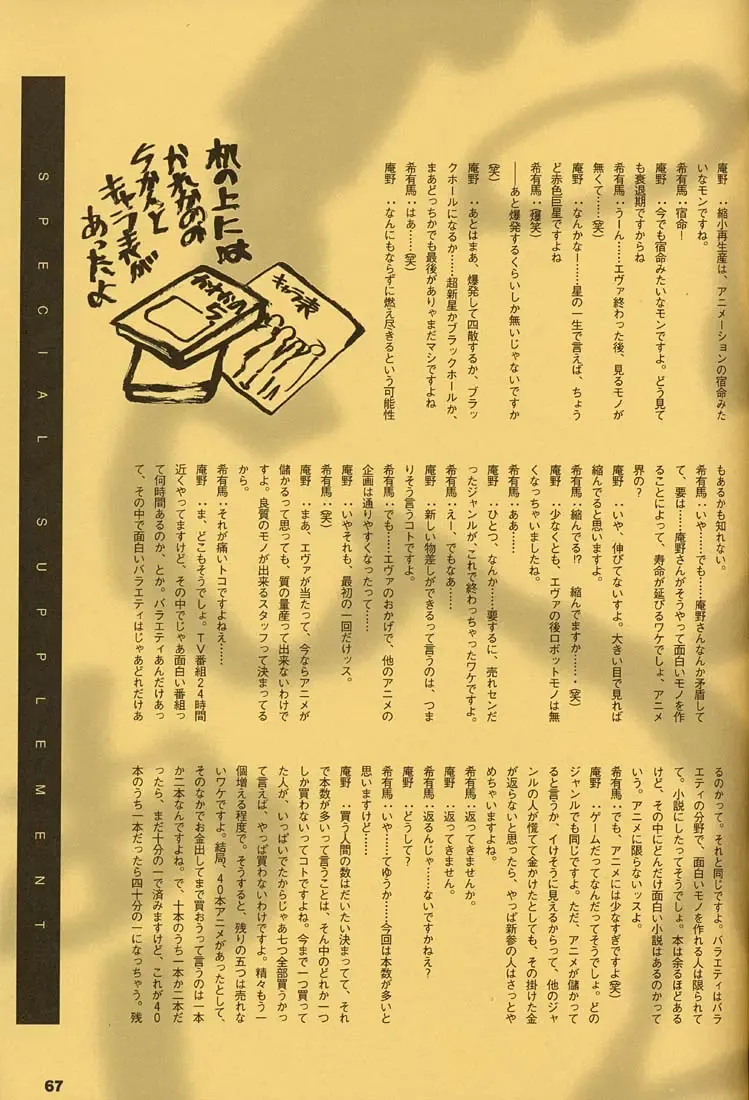 SPECIAL SUPPLEMENT
机の上には
かれかのの
らかんと
キャラ表が
あったよ
キャラ表
庵野　：縮小再生産は、アニメーションの宿命みた
いなモンですね。
希有馬：宿命！
庵野　：今でも宿命みたいなモンですよ。どう見て
も衰退期ですからね
希有馬：うーん……エヴァ終わった後、見るモノが
無くて……（笑）
庵野　：なんかなー……星の一生で言えば、ちょう
ど赤色巨星ですよね
希有馬：（爆笑）
――あと爆発するくらいしか無いじゃないですか
（笑）
庵野　：あとはまあ、爆発して四散するか、ブラッ
クホールになるか……超新星かブラックホールか、
まあどっちかでも最後がありゃまだマシですよね
希有馬：はあ……（笑）
庵野　：なんにもならずに燃え尽きるという可能性
もあるかも知れない。
希有馬：いや……でも……庵野さんなんか矛盾して
て、要は……庵野さんがそうやって面白いモノを作
ることによって、寿命が延びるワケでしょ、アニメ
界の？
庵野　：いや、伸びてないすよ。大きい目で見れば
縮んでると思いますよ。
希有馬：縮んでる!?　縮んでますか……・（笑）
庵野　：少なくとも、エヴァの後ロボットモノは無
くなっちゃいましたね。
希有馬：ああ……
庵野　：ひとつ、なんか……要するに、売れセンだ
ったジャンルが、これで終わっちゃったワケですよ。
希有馬：えー、でもなあ……
庵野　：新しい物差しができるって言うのは、つま
りそう言うコトですよ。
希有馬：でも……エヴァのおかげで、他のアニメの
企画は通りやすくなったって……
庵野　：いやそれも、最初の一回だけッス。
希有馬：（笑）
庵野　：まあ、エヴァが当たって、今ならアニメが
儲かるって思っても、質の量産って出来ないわけで
すよ。良質のモノが出来るスタッフって決まってる
から。
希有馬：それが痛いトコですよねえ……
庵野　：ま、どこもそうでしょ。ＴＶ番組２４時間
近くやってますけど、その中でじゃあ面白い番組っ
て何時間あるのか、とか。バラエティあんだけあっ
て、その中で面白いバラエティはじゃあどれだけあ
るのかって。それと同じですよ。バラエティはバラ
エティの分野で、面白いモノを作れる人は限られて
て。小説にしたってそうでしょ。本は余るほどある
けど、その中にどんだけ面白い小説はあるのかって
いう。アニメに限らないッスよ。
希有馬：でも、アニメには少なすぎですよ（笑）
庵野　：ゲームだってなんだってそうでしょ。どの
ジャンルでも同じですよ。ただ、アニメが儲かって
ると言うか、イけそうに見えるからって、他のジャ
ンルの人が慌てて金かけたとしても、その掛けた金
が返らないと思ったら、やっぱ新参の人はさっとや
めちゃいますよね。
希有馬：返ってきませんか。
庵野　：返ってきません。
希有馬：返るんじゃ……ないですかねえ？
庵野　：どうして？
希有馬：いや……てゆうか……今回は本数が多いと
思いますけど……
庵野　：買う人間の数はだいたい決まってて、それ
で本数が多いって言うことは、そん中のどれか一つ
しか買わないってコトですよね。今まで一つ買って
た人が、いっぱいでたからじゃあ七つ全部買うかっ
て言えば、やっぱ買わないわけですよ。精々もう一
個増える程度で。そうすると、残りの五つは売れな
いワケですよ。結局、４０本アニメがあったとして、
そのなかでお金出してまで買おうって言うのは一本
か二本なんですよね。で、十本のうち一本か二本だ
ったら、まだ十分の一で済みますけど、これが４０
本のうち一本だったら四十分の一になっちゃう。残
67